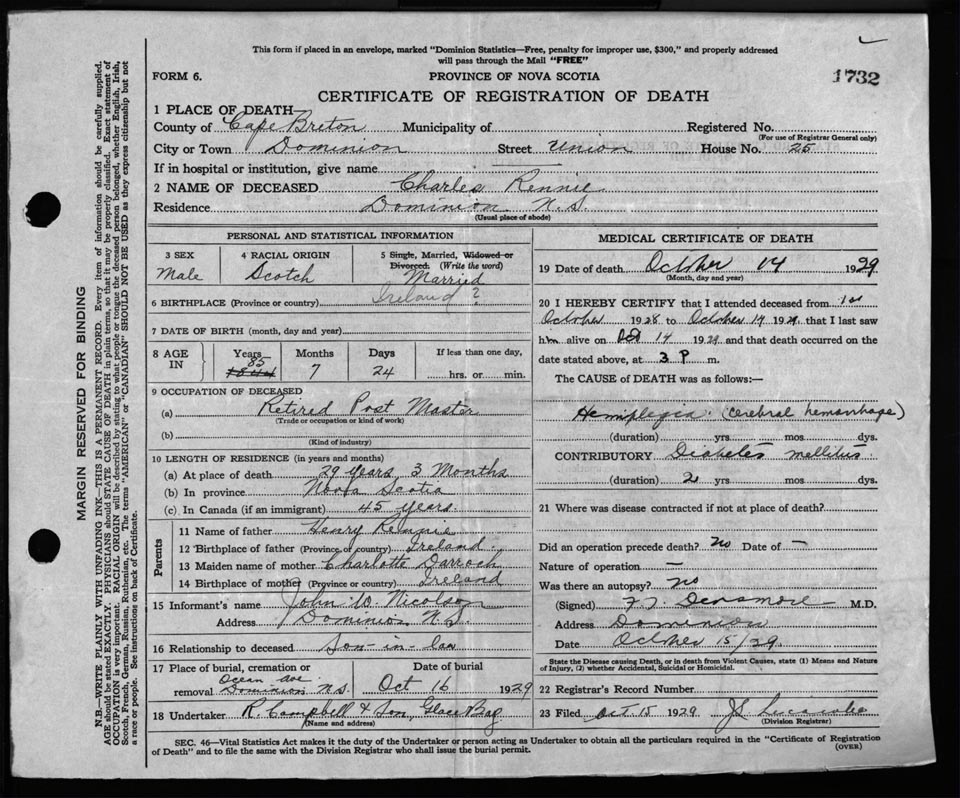 This form if placed in an envelope, marked "Dominion Statistics—Free, penalty for improper use, $300," and properly addressed
will pass through the Mail "FREE"
FORM 6.
PROVINCE OF NOVA SCOTIA
1732
CERTIFICATE OF REGISTRATION OF DEATH
1 PLACE OF DEATH
County of Cape Breton Municipality of Registered No.
(For use of Registrar General only)
City or Town Dominion Street Union House No. 25
If in hospital or institution, give name
2 NAME OF DECEASED Charles Rennie
Residence Dominion N.S.
(Usual place of abode)
PERSONAL AND STATISTICAL INFORMATION
3 SEX
Male
4 RACIAL ORIGIN
Scotch
5 Single, Married, Widowed or
Divorced. (Write the word)
Married
6 BIRTHPLACE (Province or country) Ireland ?
7 DATE OF BIRTH (month, day and year)
8 AGE IN
Years Months Days If less than one day,
85
1844 7 24 hrs. or min.
9 OCCUPATION OF DECEASED
(a) Retired Post Master
(Trade or occupation or kind of work)
(b)
(Kind of industry)
10 LENGTH OF RESIDENCE (in years and months)
(a) At place of death 29 years 3 Months
(b) In province Nova Scotia
(c) In Canada (if an immigrant) 45 years.
Parents
11 Name of father Henry Rennie
12 Birthplace of father (Province or country) Ireland.
13 Maiden name of mother Charlotte Darroch
14 Birthplace of mother (Province or country) Ireland
15 Informant's name John W. Nicolson
Address Dominion N.S.
16 Relationship to deceased Son-in-law
17 Place of burial, cremation or Date of burial
Ocean Ave.
removal Dominion N.S. Oct 16 1929
18 Undertaker R. Campbell & Son, Glace Bay
(Name and address)
MEDICAL CERTIFICATE OF DEATH
19 Date of death October 14 1929
(Month, day and year)
20 I HEREBY CERTIFY that I attended deceased from 1st
October 1928 to October 14 1929 that I last saw
him alive on Oct 14 1929 and that death occurred on the
date stated above, at 3 P m.
The CAUSE of DEATH was as follows:—
Hemiplegia. (cerebral hemorrhage)
(duration) yrs. mos. dys.
CONTRIBUTORY Diabetes mellitus
(duration) 2 yrs mos. dys.
21 Where was disease contracted if not at place of death?
Did an operation precede death? no Date of —
Nature of operation —
Was there an autopsy? no
(Signed) Densmore M.D.
Address Dominion
Date October 15/29
State the Disease causing Death, or in death from Violent Causes, state (1) Means and Nature
of Injury, (2) whether Accidental, Suicidal or Homicidal.
22 Registrar's Record Number
23 Filed Oct. 15 1929
(Division Registrar)
SEC. 46—Vital Statistics Act makes it the duty of the Undertaker or person acting as Undertaker to obtain all the particulars required in the "Certificate of Registration
of Death" and to file the same with the Division Registrar who shall issue the burial permit.
(OVER)
MARGIN RESERVED FOR BINDING
N.B.—WRITE PLAINLY WITH UNFADING INK—THIS IS A PERMANENT RECORD. Every item of information should be carefully supplied.
AGE should be stated EXACTLY. PHYSICIANS should STATE CAUSE OF DEATH in plain terms, so that it may be properly classified. Exact statement of
OCCUPATION is very important. RACIAL ORIGIN will be described by stating to what people or tongue the deceased person belonged, whether English, Irish,
Scotch, French, German, Russian, Ruthenian, etc. The terms "AMERICAN" or "CANADIAN" SHOULD NOT BE USED as they express citizenship but not
a race or people. See instructions on back of Certificate.